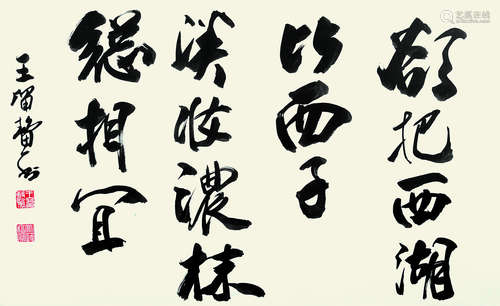 欲把西湖
比西子
淡妝濃抹
總相宜
王留鰲書